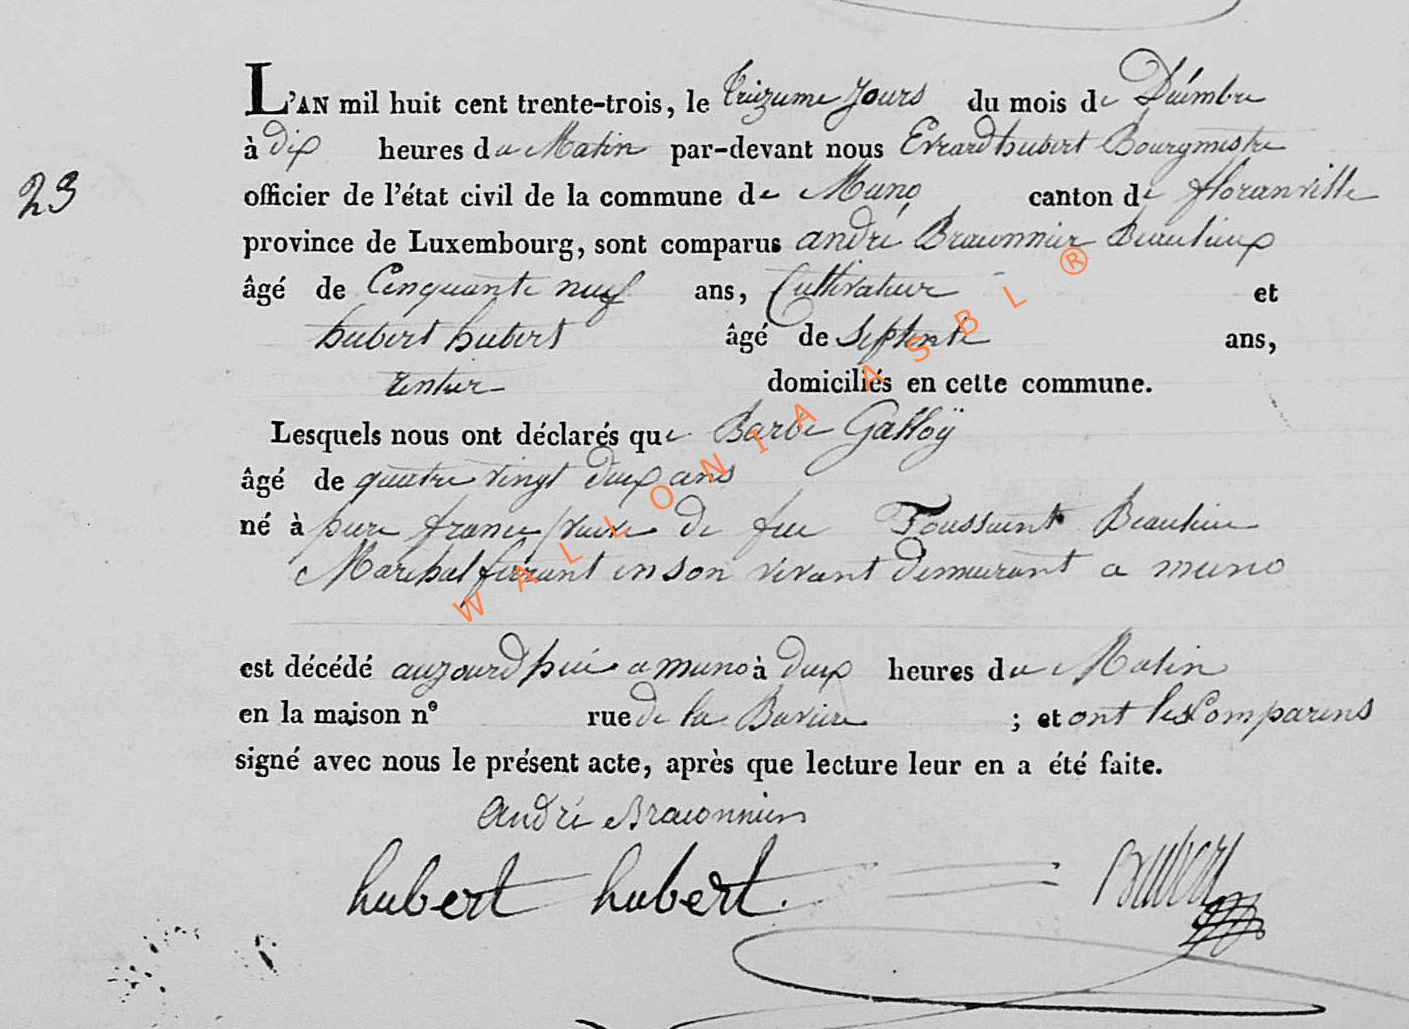 L'AN mil huit cent trente-trois, le treizieme jours du mois de Décembre
à dix heures du Matin par-devant nous Evrard hubert Bourgmestre
23
officier de l'état civil de la commune de Muno canton de floranville
province de Luxembourg, sont comparus andré Braconnier Beaulieux
âgé de Cinquante neuf ans, Cultivateur et
hubert hubert âgé de Septente ans,
rentier domiciliés en cette commune.
Lesquels nous ont déclarés que Barbe Galloÿ
âgé de quatre vingt deux ans
né à pure france veuve de feu Toussaint Beaulieu
Marehal ferrant en son vivant demeurant a muno
est décédé aujourd'hui a muno à deux heures du Matin
en la maison nº rue de la Baviere ; et ont les Comparens
signé avec nous le présent acte, après que lecture leur en a été faite.
andré Braconnier
hubert hubert. Hubert
WALLONIA ASBL ®